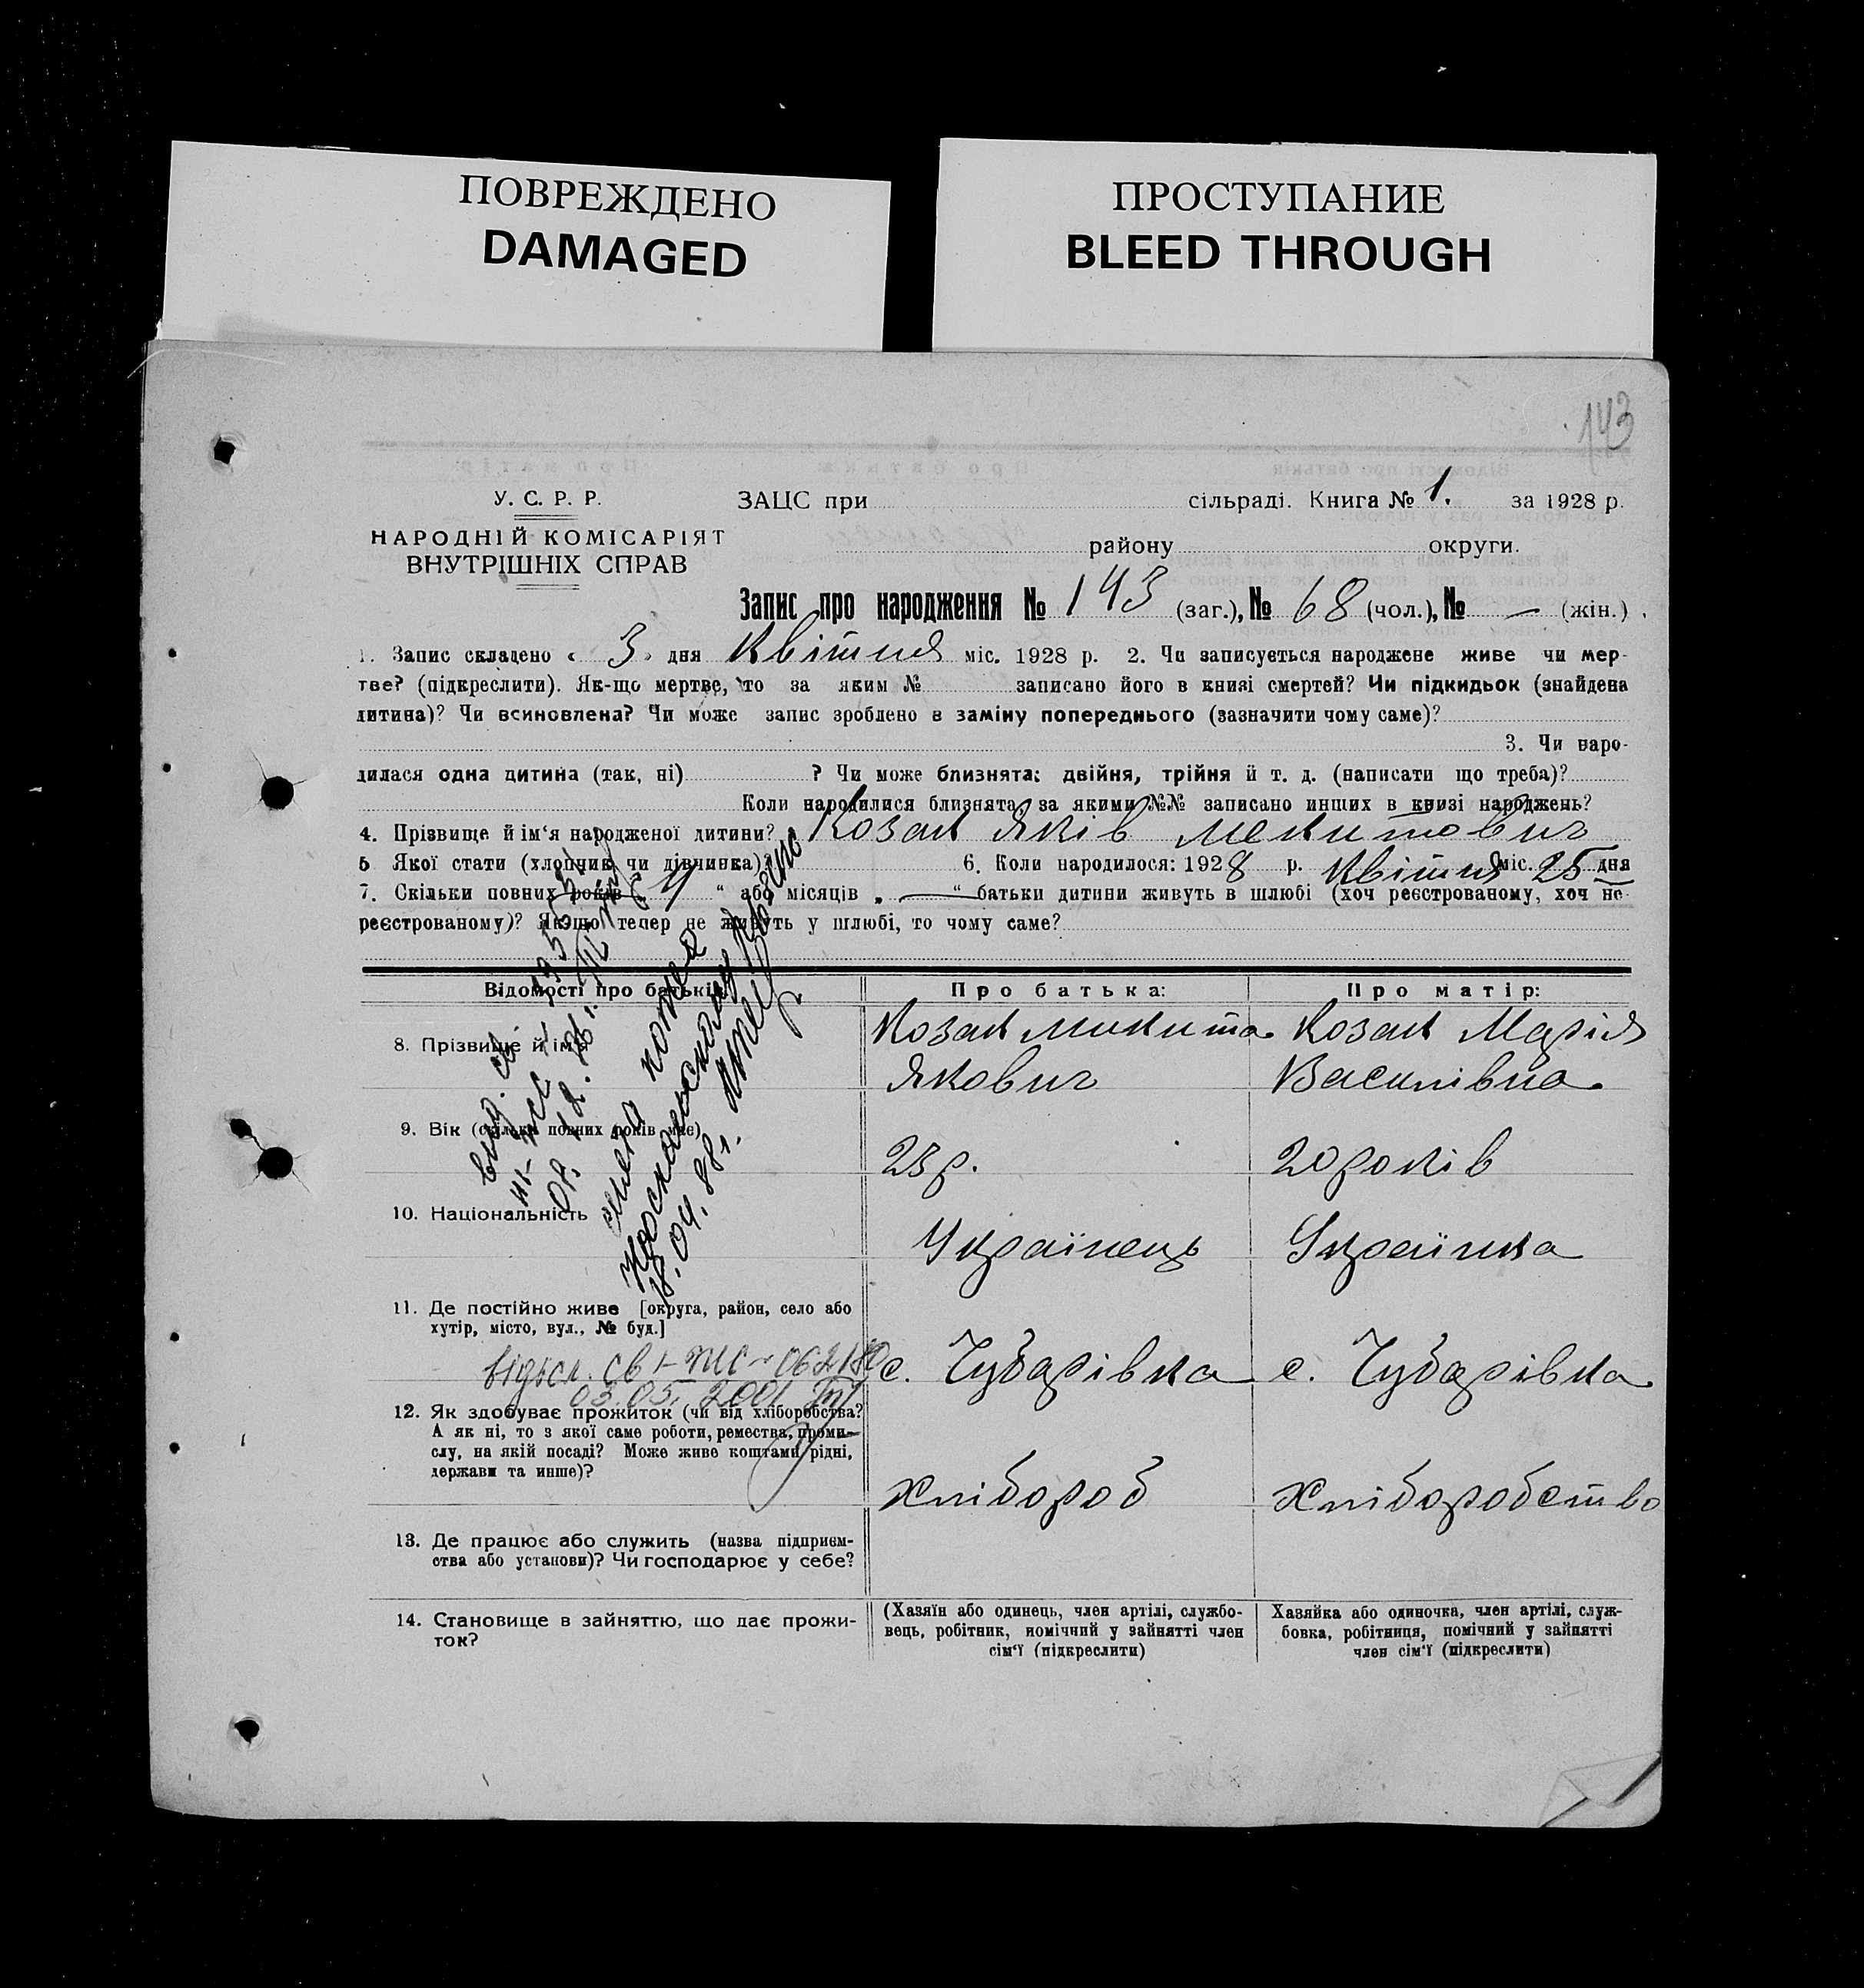 ПОВРЕЖДЕНО
DAMAGED
ПРОСТУПАНИЕ
BLEED THROUGH
143
У. С. Р. Р.
НАРОДНІЙ КОМІСАРІЯТ
ВНУТРІШНІХ СПРАВ
ЗАЦС при сільраді. Книга № 1. за 1928 р.
району округи.
Запис про народження № 143 (заг.), № 68 (чол.), № — (жін.)
1. Запис складено « 3 » дня Квітня міс. 1928 р. 2. Чи записується народжене живе чи мер-
тве? (підкреслити). Як-що мертве, то за яким № записано його в книзі смертей? Чи підкидьок (знайдена
дитина)? Чи всиновлена? Чи може запис зроблено в заміну попереднього (зазначити чому саме)?
3. Чи наро-
дилася одна дитина (так, ні) ? Чи може близнята: двійня, трійня й т. д. (написати що треба)?
Коли народилися близнята, за якими №№ записано инших в книзі народжень?
4. Прізвище й ім'я народженої дитини? Козак Яків Мекитович
5 Якої стати (хлопчик чи дівчинка)? 6. Коли народилося: 1928 р. Квітня міс. 25 дня
7. Скільки повних років „ 4 “ або місяців „ — “ батьки дитини живуть в шлюбі (хоч реєстрованому, хоч не-
реєстрованому)? Якщо тепер не живуть у шлюбі, то чому саме?
Відомості про батьків
Про батька:
Про матір:
8. Прізвище й ім'я
Козак Микита
Якович
Козак Марія
Василівна
9. Вік (скільки повних років має)
23 р.
20 років
10. Національність
Українець
Українка
11. Де постійно живе [округа, район, село або
хутір, місто, вул., № буд.]
с. Чубарівка
с. Чубарівка
03.03. 2001
12. Як здобуває прожиток (чи від хліборобства?
А як ні, то з якої саме роботи, ремества, проми-
слу, на якій посаді? Може живе коштами рідні,
держави та инше)?
Хлібороб
Хліборобство
13. Де працює або служить (назва підприєм-
ства або установи)? Чи господарює у себе?
14. Становище в зайняттю, що дає прожи-
ток?
(Хазяїн або одинець, член артілі, службо-
вець, робітник, помічний у зайнятті член
сім'ї (підкреслити)
Хазяйка або одиночка, член артілі, служ-
бовка, робітниця, помічний у зайнятті
член сім'ї (підкреслити)